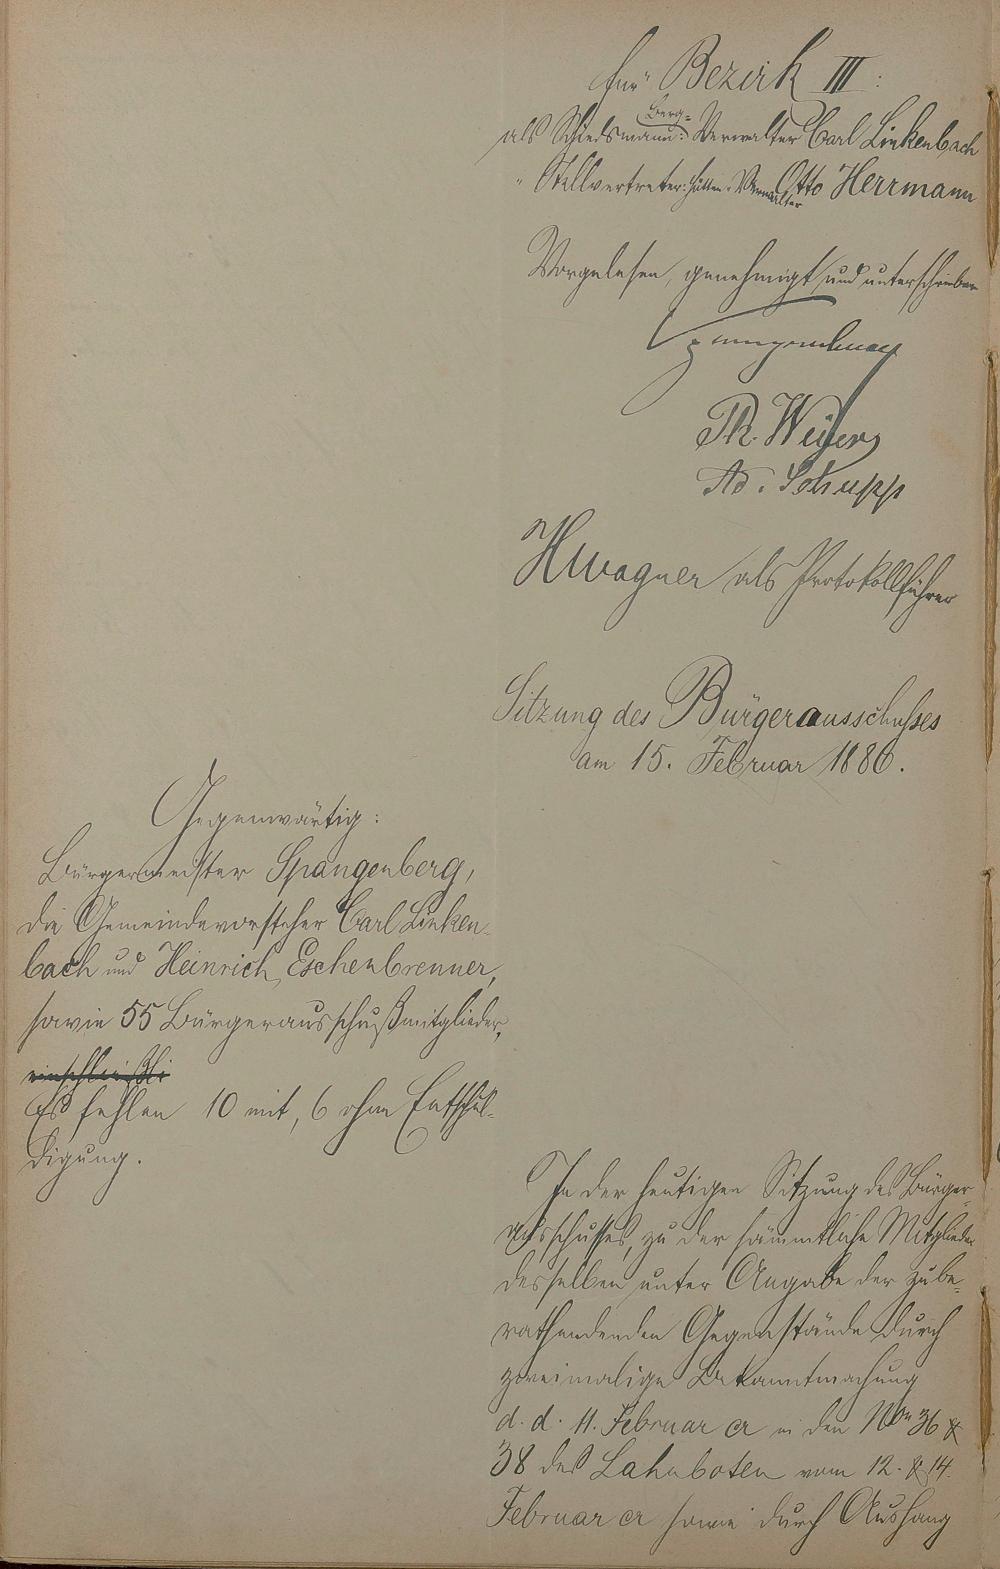 für Bezirk III:
als Schiedsmann: Berg-Verwalter Carl Linkenbach
" Stellvertreter: Hütten-Verwalter Otto Herrmann
Vorgelesen, genehmigt und unterschrieben
Spangenberg
Th. Weyer
Ad. Schupp
HWagner als Protokollführer
Sitzung des Bürgerausschusses
am 15. Februar 1886.
Gegenwärtig:
Bürgermeister Spangenberg,
die Gemeindevorsteher Carl Linken-
bach und Heinrich Eschenbrenner,
sowie 55 Bürgerausschußmitglieder,
einschließli
Es fehlen 10 mit, 6 ohne Entschul-
digung.
In der heutigen Sitzung des Bürger-
ausschusses, zu der sämmtliche Mitglieder
desselben unter Angabe der zu be-
rathendenden Gegenstände durch
zweimalige Bekanntmachung
d. d. 11. Februar cr in den Nrn 36 &
38 des Lahnboten vom 12. & 14.
Februar cr sowie durch Aushang